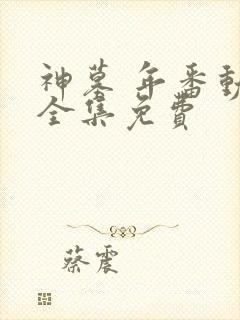 神墓 年番動
全集免費
蔡震